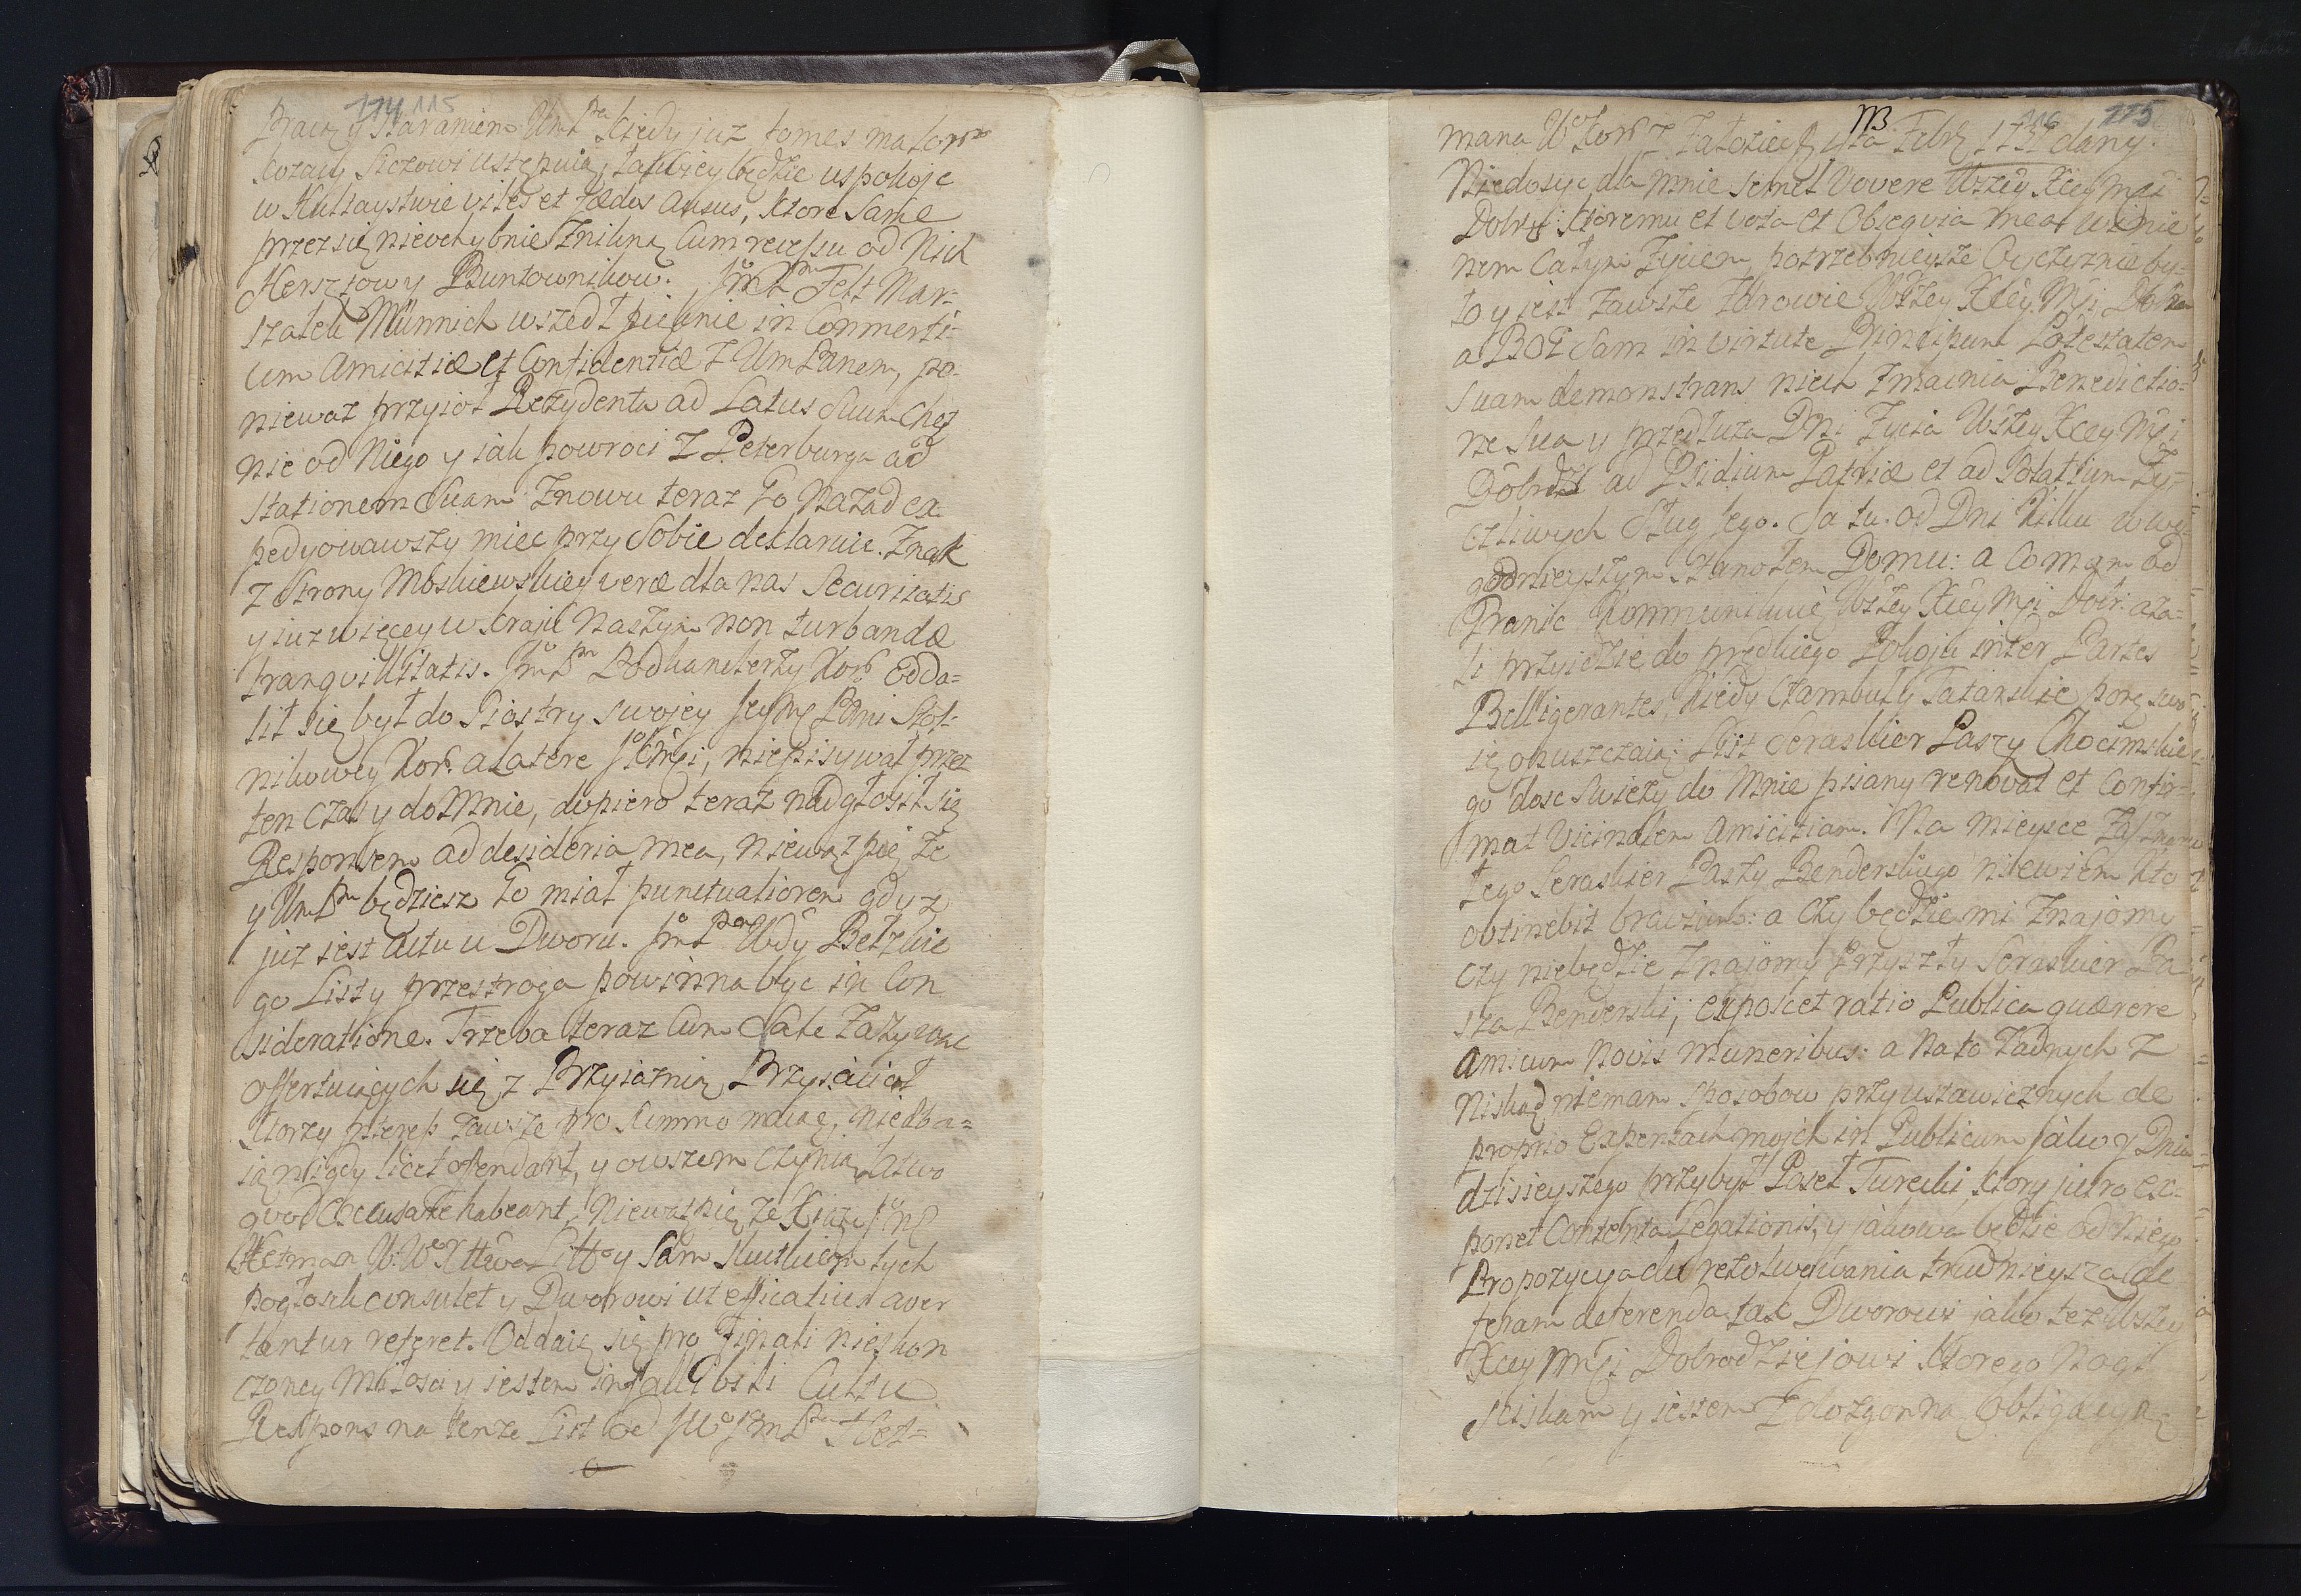 114 115
Pracą y staraniem UmPa kiedy juz fomes malor
kozacy Siczowi ustępuią, łatwiey będzie uspokoic
w Hultaystwie viles et fœdos ausus, ktore same
przez się nieochybnie znikną cum recessu od nich
Hersztow y Buntownikow. JmP Felt Mar-
szałek Münnich wszedł pięknie in Commerti-
um Amicitiæ et Confidentiæ z Um Panem, po-
niewaz przyioł Rezydenta ad Latus suum
nie od Niego y iak powroci z Peterburga ad
stationem Suam znowu teraz go nazad ex-
pedyowawszy miec przy Sobie deklaruie. Znak
z strony Moskiewskiey veræ dla nas Securitatis
y juz więcey w kraju naszym non turbandæ
tranquillitatis. JmP Podkanclerzy Kor. odda-
lił się był do Siostry swojey Jeymć Pani Stol-
nikowey Kor. a Latere JKMci, niepisywał przez
ten czas y do Mnie, dopiero teraz nadgłosił się
Responsem ad desideria mea, niewątpię ze
y UmPan będziesz go miał punctualiorem gdyz
juz iest actu u Dworu. JmP Wdy Bełzkie
go Listy przestroga powinna byc in Con
sideratione. Trzeba teraz cum Sale zazywac
offertuiących się z Przyiaznią Przyiacioł
ktorzy zawsze pro summo maiąc, niedba-
ią nigdy licet offendant, y owszem czynią łatwo
quod excusate habeant, Niewątpię ze Xiąze JmP
Hetman W. W. X. Litt. y Sam skutkiem tych
pogłosek consulet y Dworowi ut efficatius aver
tantur referet. Oddaię się pro finali nieskon
czoney Miłosci y iestem infallibili Cultu
Respons na tenze List od JW JmPa Het-
113
116 115
mana W. Kor. z Załoziec 4ta Febr. 1737 dany.
Niedosyc dla mnie semel Vovere Wszey Xcey Mci
Dobr. ktoremu et vota et Obsequia mea winie
nem całym zyciem, potrzebnieysze Oyczyznie by-
ło y iest zawsze zdrowie Wszey Xcey Mci Dobr.
a BOG sam in virtute Principum Potestatem
suam demonstrans niech zmacnia Benedictio-
ne sua y przedłuza Dni zycia Wszey Xcey Mci
Dobrdz. ad Psidium Patriæ et ad Solatium zy-
czliwych Sług Jego. Ja tu od Dni kilku w wy
godnieyszym stanołem Domu: a co mam od
Granic kommunikuię Wszey Xcey Mci Dobr. aza-
li przyidzie do prędkiego Pokoju inter Partes
Belligerantes, kiedy czambuły Tatarskie porę swo
ię opuszczaią; List Seraskier Paszy Chocimskie-
go dosc swiezy do Mnie pisany renovat et Confir-
mat Vicinalem Amicitiam. Na mieysce
tego Seraskier Paszy Benderskiego niewiem kto
obtinebit bravium: a czy będzie mi znajomy
czy niebędzie znajomy przyszły Seraskier Pa
sza Benderski; exposcet ratio Publica quærere
Amicum novis muneribus: a na to zadnych z
nikąd niemam sposobow przy ustawicznych de
proprio Expensach mojch in Publicum jako y Dnia
dzisieyszego przybył Poseł Turecki ktory jutro ex-
ponet Contenta Legationis, y jakowa będzie od niego
Propozycya do rezolwowania trudnieysza de
feram deferenda tak Dworowi jako tez Wszey
Xcey Mci Dobrodziejowi ktorego nogi
sciskam y iestem z dozgonną Obligacyą